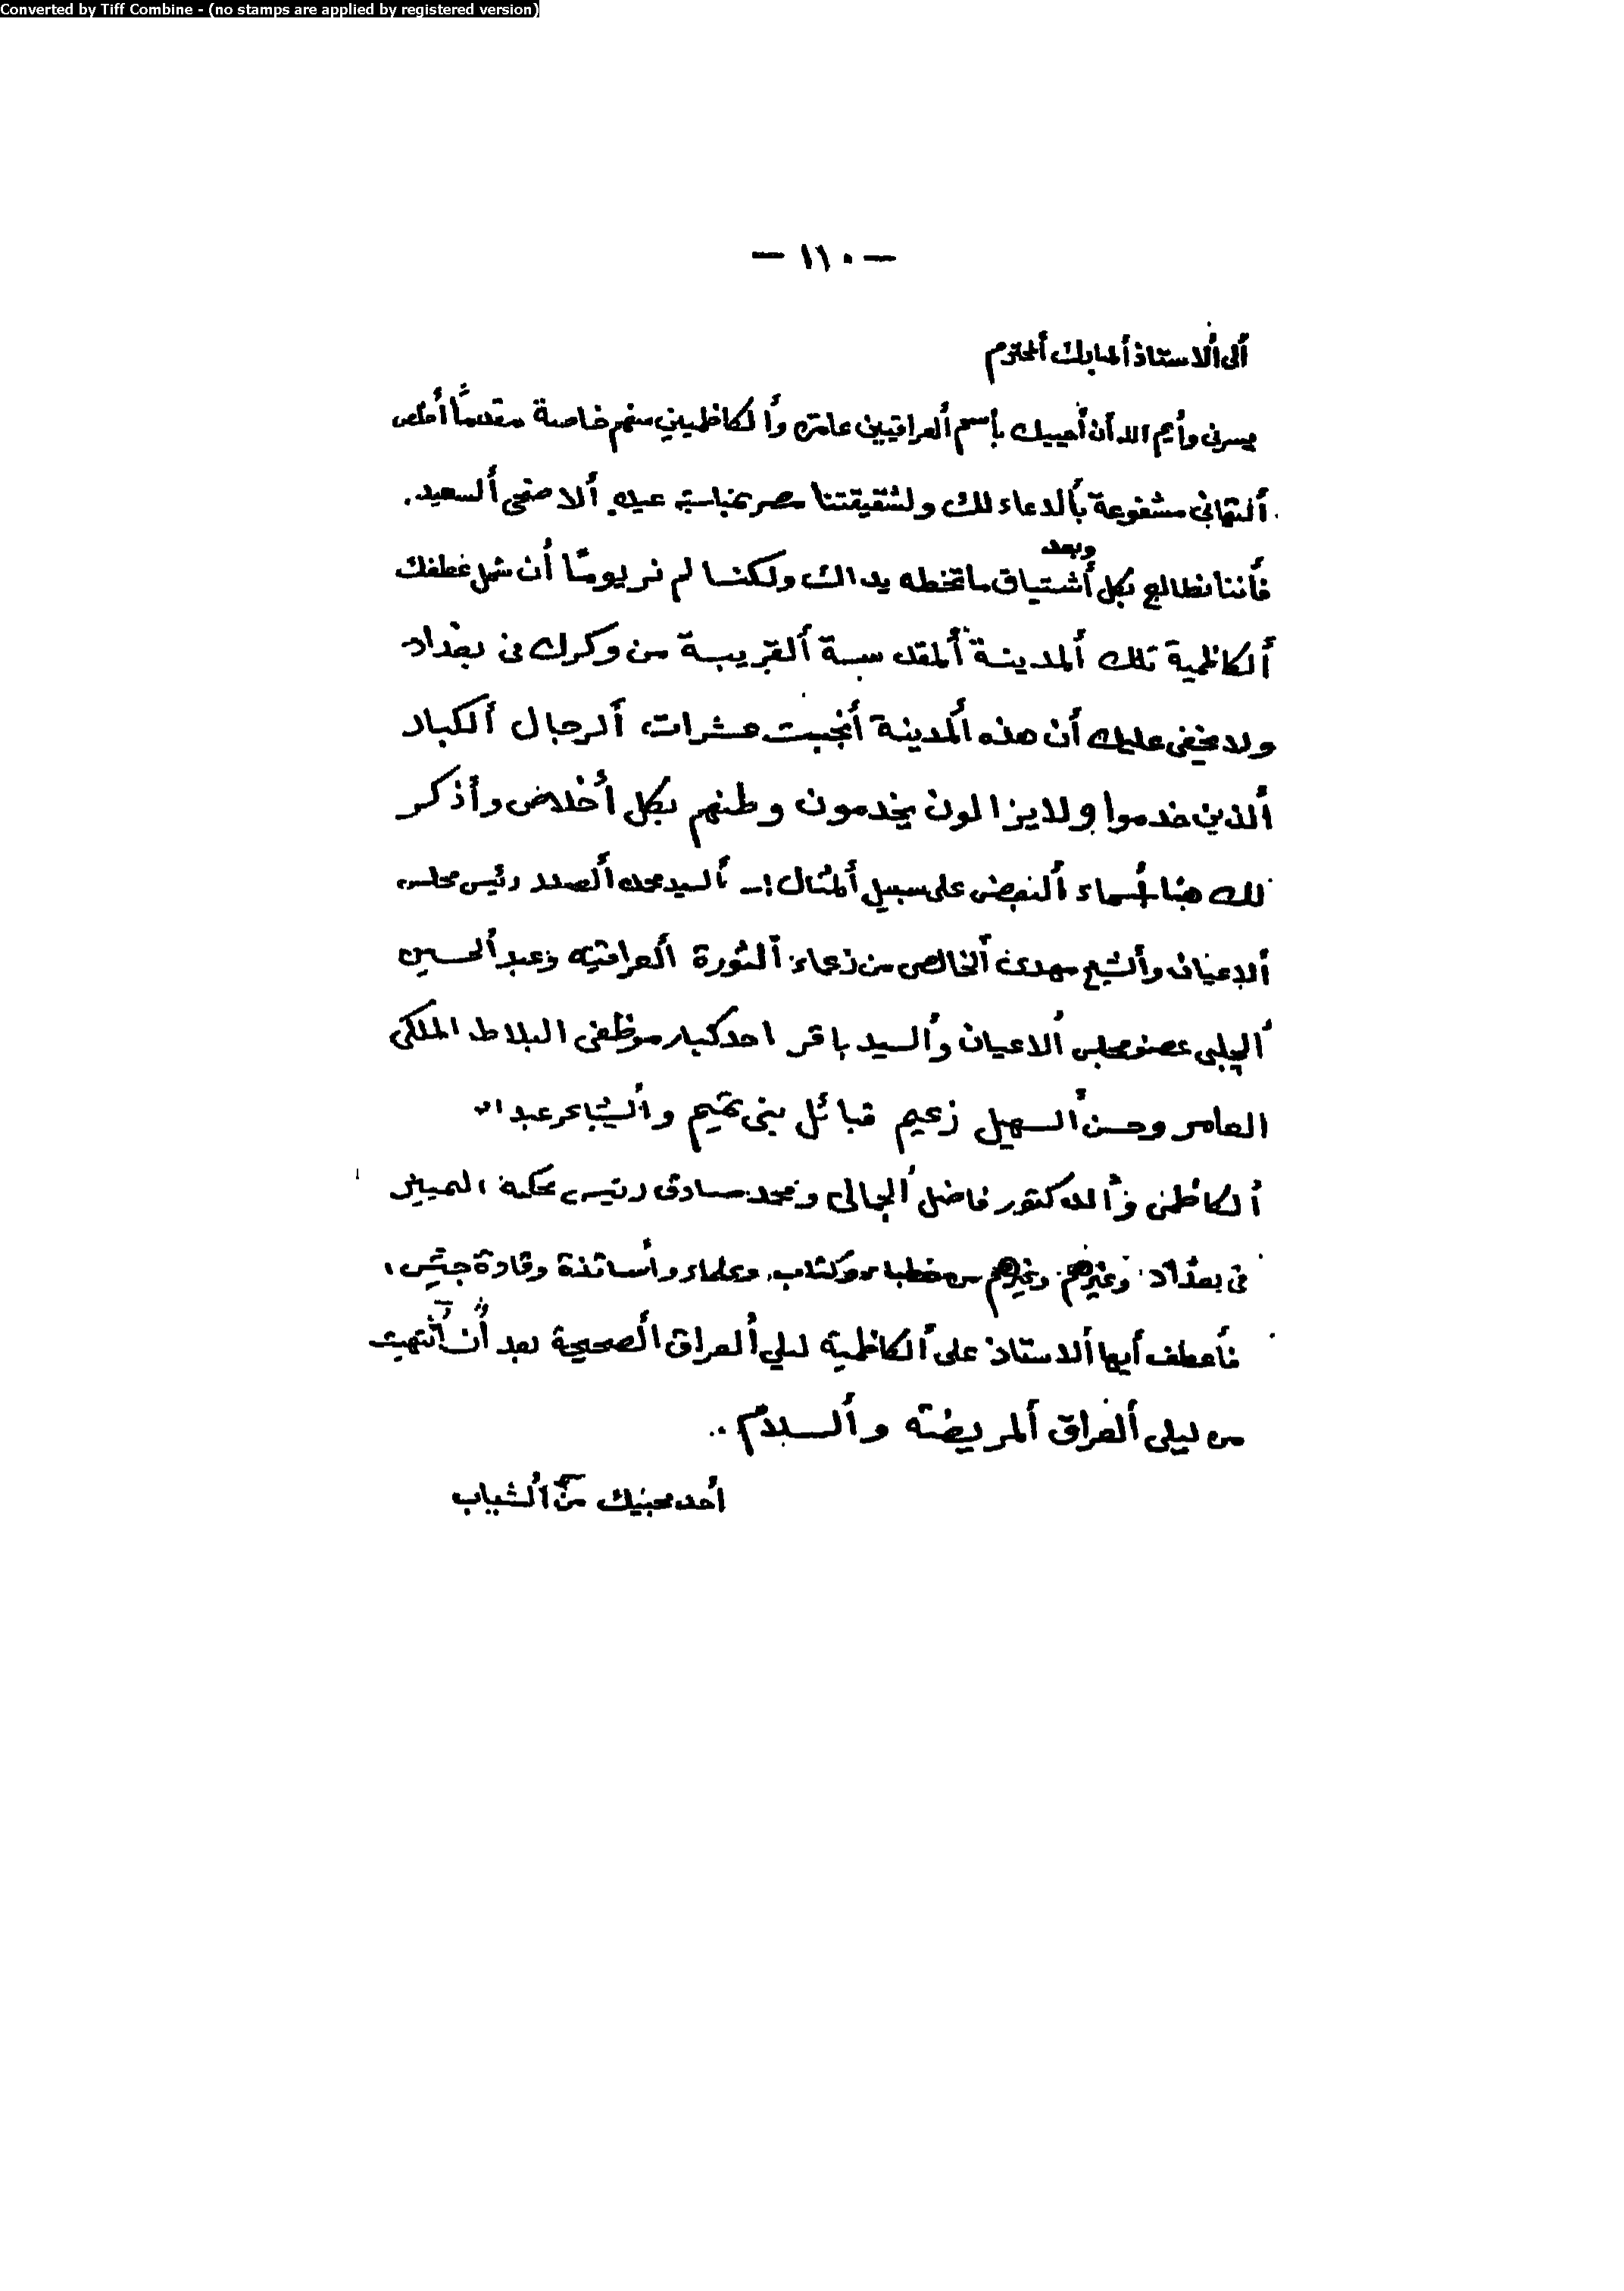 Converted by Tiff Combine - (no stamps are applied by registered version)
— ١١٠ —
ألى ألاستاذ ألمبارك ألمحترم
يسرنى وأيم الله أن أحييك بأسم ألعراقيين عامة وألكاظميين منهم خاصة مقدماً أخلص
ألتهانى مشفوعة بألدعاء لك ولشقيقتنا مصر بمناسبة عيد ألاضحى ألسعيد.
وبعد
فأننا نطالع بكل أشتياق ماتخطه يداك ولكننا لم نر يوماً أن شمل عطفك
ألكاظمية تلك ألمدينة ألمقدسة ألقريبة من وكرك فى بغداد
ولا يخفى عليك أن هذه ألمدينة أنجبت عشرات ألرجال ألكبار
ألذين خدموا ولايزالون يخدمون وطنهم بكل أخلاص وأذكر
لك هنا أسماء ألبعض على سبيل ألمثال :- ألسيد محمد ألصدر رئيس مجلس
ألاعيان وألشيخ مهدى ألخالصى من زعماء ألثورة ألعراقية وعبد ألحسين
ألچلبى عضو مجلس ألاعيان وألسيد باقر احد كبار موظفى البلاط الملكى
العامر وحسن ألسهيل زعيم قبائل بنى تميم وألشاعر عبد ال
ألكاظمى وألدكتور فاضل ألجمالى ومحمد صادق رئيس محكمة التمييز
فى بغداد وغيرهم وغيرهم من خطباء وكتاب وعلماء وأساتذة وقادة جيش،
فأعطف أيها ألاستاذ على ألكاظمية ليلى ألعراق ألصحيحة بعد أن أنتهيت
من ليلى ألعراق ألمريضة وألسلام..
أحد محبيك من ألشباب